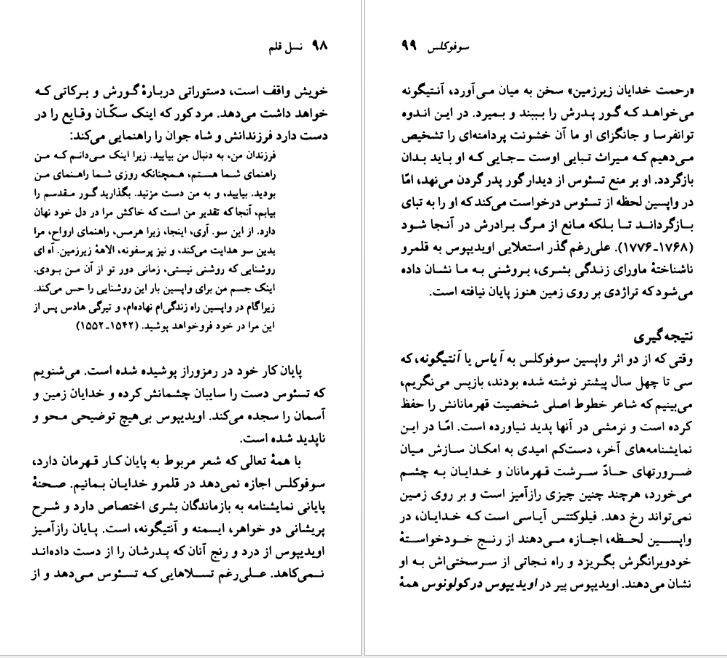 ۹۸ نسل قلم
خویش واقف است، دستوراتی دربارهٔ گورش و برکاتی که
خواهد داشت می‌دهد. مرد کور که اینک سکّان وقایع را در
دست دارد فرزندانش و شاه جوان را راهنمایی می‌کند:
فرزندان من، به دنبال من بیایید. زیرا اینک می‌دانم که من
راهنمای شما هستم، همچنانکه روزی شما راهنمای من
بودید. بیایید، و به من دست مزنید. بگذارید گور مقدسم را
بیابم، آنجا که تقدیر من است که خاکش مرا در دل خود نهان
دارد. از این سو. آری، اینجا، زیرا هرمس، راهنمای ارواح، مرا
بدین سو هدایت می‌کند، و نیز پرسفونه، الاههٔ زیرزمین. آه ای
روشنایی که روشنی نیستی، زمانی دور تو از آن من بودی.
اینک جسم من برای واپسین بار این روشنایی را حس می‌کند.
زیرا گام در واپسین راه زندگی‌ام نهاده‌ام، و تیرگی هادس پس از
این مرا در خود فروخواهد پوشید. (۱۵۴۲-۱۵۵۲)
پایان کار خود در رمزوراز پوشیده شده است. می‌شنویم
که تسئوس دست را سایبان چشمانش کرده و خدایان زمین و
آسمان را سجده می‌کند. اویدیپوس بی‌هیچ توضیحی محو و
ناپدید شده است.
با همهٔ تعالی که شعر مربوط به پایان کار قهرمان دارد،
سوفوکلس اجازه نمی‌دهد در قلمرو خدایان بمانیم. صحنهٔ
پایانی نمایشنامه به بازماندگان بشری اختصاص دارد و شرح
پریشانی دو خواهر، ایسمنه و آنتیگونه، است. پایان رازآمیز
اویدیپوس از درد و رنج آنان که پدرشان را از دست داده‌اند
نمی‌کاهد. علی‌رغم تسلاهایی که تسئوس می‌دهد و از
سوفوکلس ۹۹
«رحمت خدایان زیرزمین» سخن به میان می‌آورد، آنتیگونه
می‌خواهد که گور پدرش را ببیند و بمیرد. در این اندوه
توانفرسا و جانگزای او ما آن خشونت پردامنه‌ای را تشخیص
می‌دهیم که میراث تبایی اوست ـ جایی که او باید بدان
بازگردد. او بر منع تسئوس از دیدار گور پدر گردن می‌نهد، امّا
در واپسین لحظه از تسئوس درخواست می‌کند که او را به تبای
بازگرداند تا بلکه مانع از مرگ برادرش در آنجا شود
(۱۷۶۸-۱۷۷۶). علی‌رغم گذر استعلایی اویدیپوس به قلمرو
ناشناختهٔ ماورای زندگی بشری، بروشنی به ما نشان داده
می‌شود که تراژدی بر روی زمین هنوز پایان نیافته است.
نتیجه‌گیری
وقتی که از دو اثر واپسین سوفوکلس به آیاس یا آنتیگونه، که
سی تا چهل سال پیشتر نوشته شده بودند، بازپس می‌نگریم،
می‌بینیم که شاعر خطوط اصلی شخصیت قهرمانانش را حفظ
کرده است و نرمشی در آنها پدید نیاورده است. امّا در این
نمایشنامه‌های آخر، دست‌کم امیدی به امکان سازش میان
ضرورتهای حادّ سرشت قهرمانان و خدایان به چشم
می‌خورد، هرچند چنین چیزی رازآمیز است و بر روی زمین
نمی‌تواند رخ دهد. فیلوکتتس آیاسی است که خدایان، در
واپسین لحظه، اجازه می‌دهند از رنج خودخواستهٔ
خودویرانگرش بگریزد و راه نجاتی از سرسختی‌اش به او
نشان می‌دهند. اویدیپوس پیر در اویدیپوس در کولونوس همهٔ